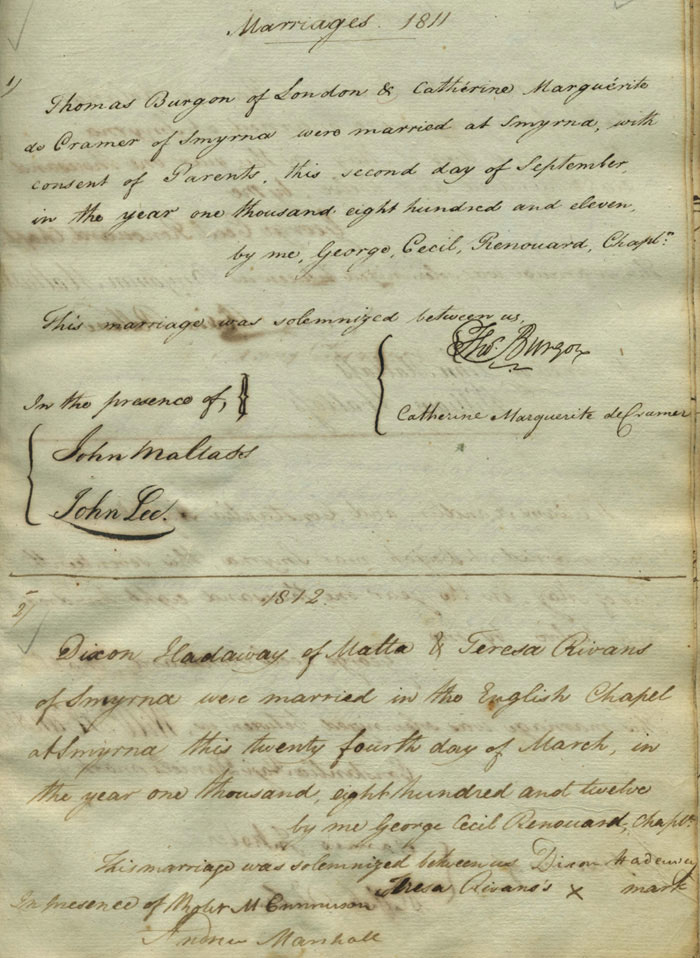 Marriages. 1811
1)
Thomas Burgon of London & Cathérine Marguérite
de Cramer of Smyrna were married at Smyrna, with
consent of Parents, this second day of September,
in the year one thousand eight hundred and eleven,
by me, George, Cecil, Renouard, Chapln
This marriage was solemnized between us,
Thos. Burgon
In the presence of,
Catherine Marguerite de Cramer
John Maltass
John Lee.
1812.
2)
Dixon Hadaway of Malta & Teresa Rivans
of Smyrna were married in the English Chapel
at Smyrna this twenty fourth day of March, in
the year one thousand, eight hundred and twelve
by me George Cecil Renouard, Chapln
This marriage was solemnized between us Dixon Hadaway
Teresa Rivans's × mark
In presence of
Andrew Marshall